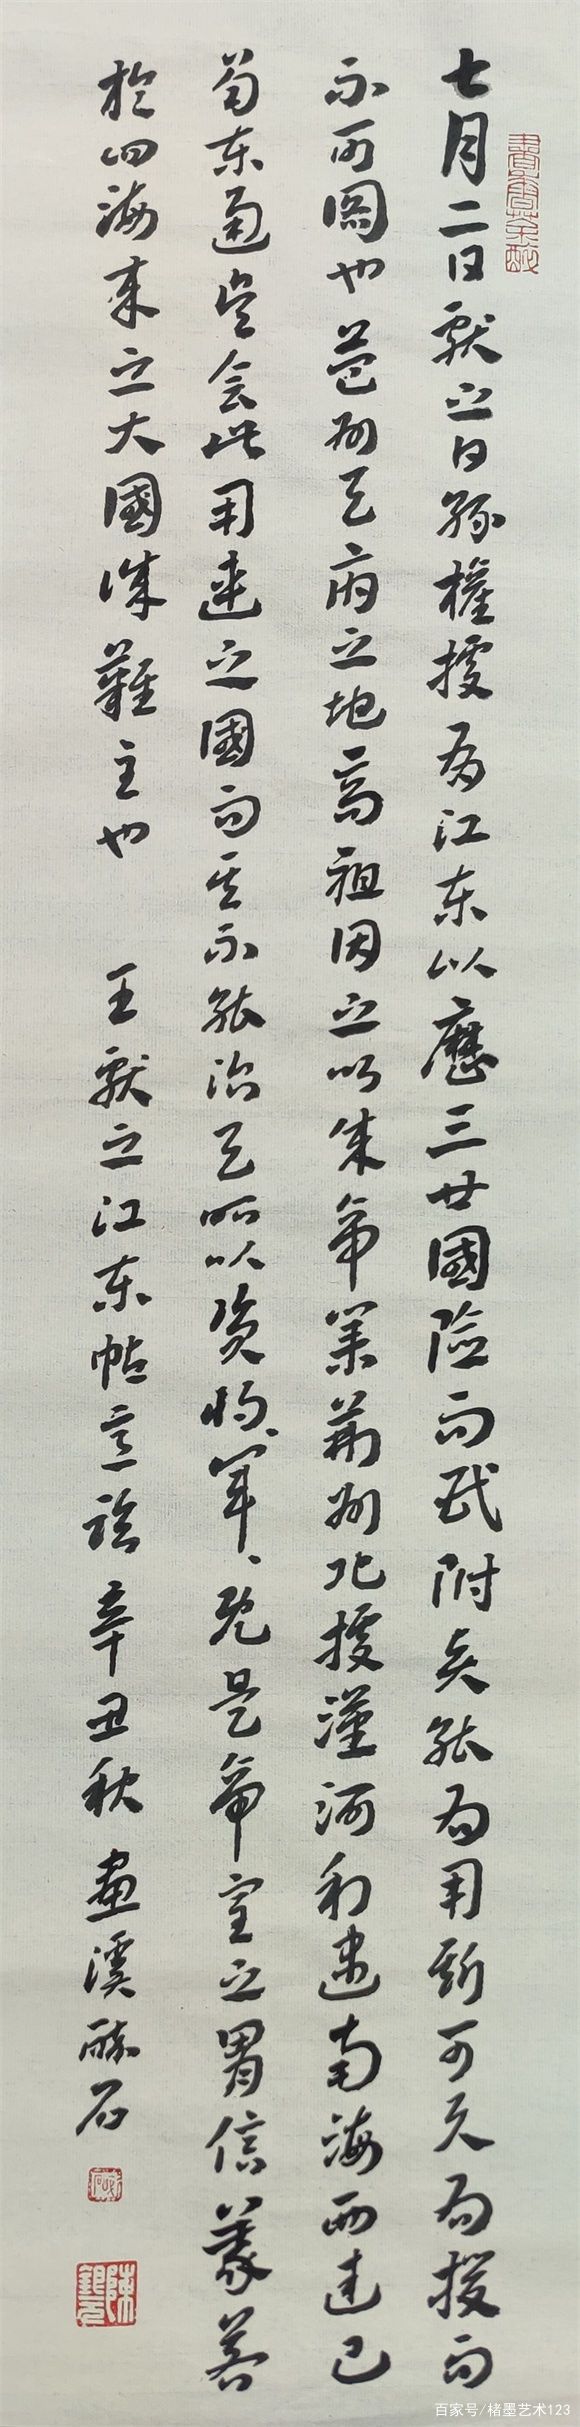 七月二日獻之白孫權據有江东以歷三世國險而民附矣能為用斯可久為援而
不可圖也益州天府之地高祖因之以成帝業荊州北據漢河利盡南海西連巴
蜀东通吳会此用武之國而其不能治天所以資將、軍、既是帝室之胄信義著
於四海来立大國誠難主也 王獻之江东帖意臨 辛丑秋 畫溪醉石
百家号/楮墨艺术123